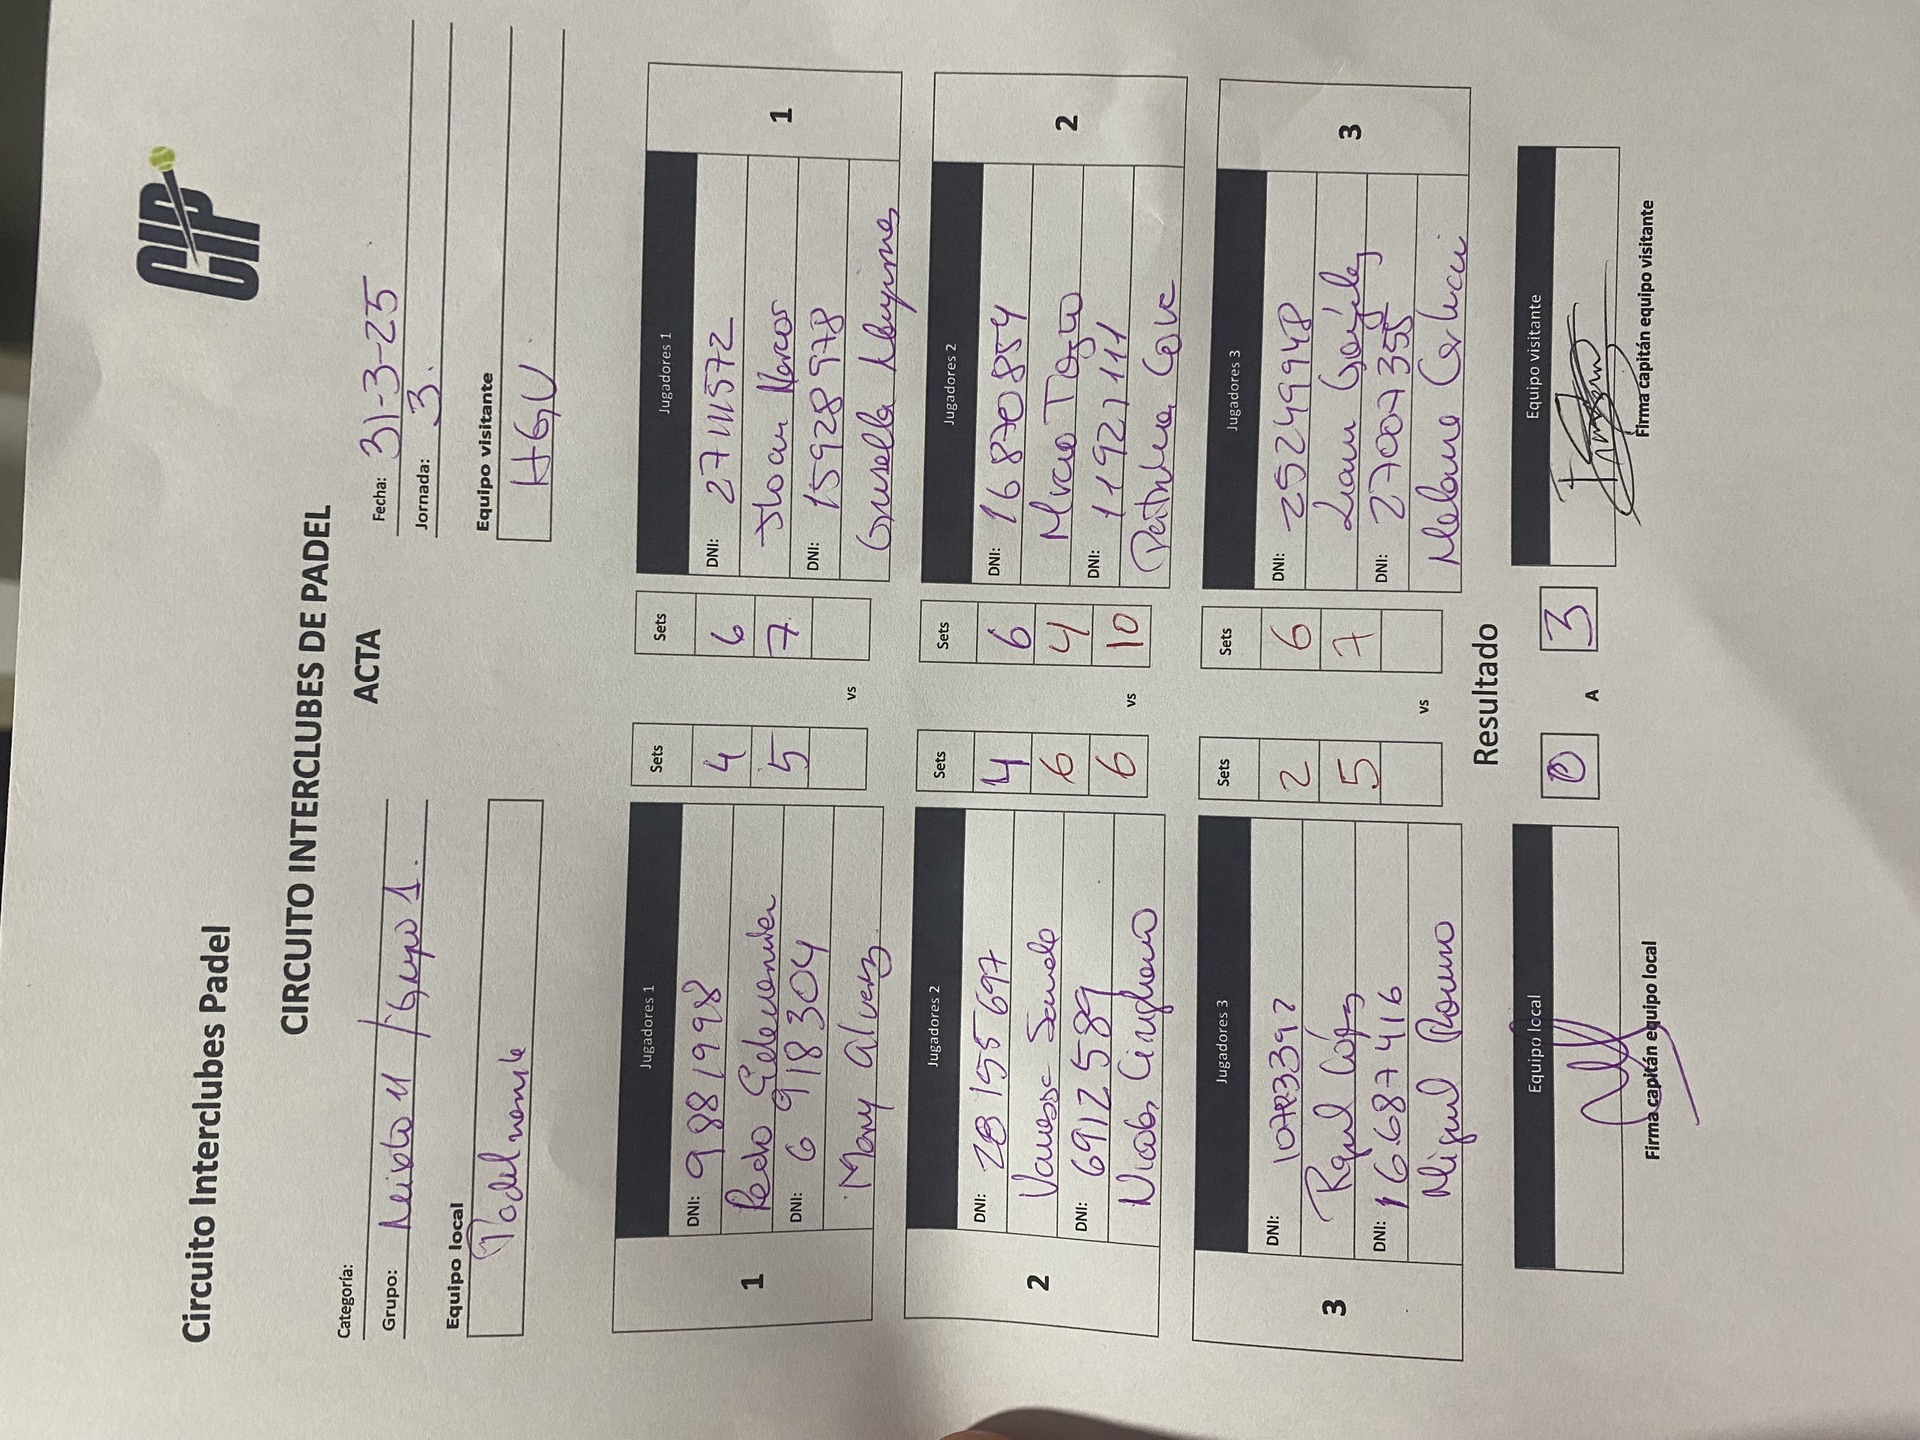 Circuito Interclubes Padel
CIP
CIRCUITO INTERCLUBES DE PADEL
ACTA
Categoría:
Fecha: 31-3-25
Grupo: Meixto 11 / Grupo 1.
Jornada: 3.
Equipo local
Equipo visitante
Padelnorte
HGU
Jugadores 1
Sets
Sets
Jugadores 1
1
DNI: 9881998
4
6
DNI: 27111572
1
Pedro
5
7
Jhoan Marcos
DNI: 6918304
DNI: 15928978
Mary Alvarez
vs
Jugadores 2
Sets
Sets
Jugadores 2
2
DNI: 28155697
4
6
DNI: 16870854
2
Vanessa
6
4
DNI: 6912589
6
10
DNI: 11927111
Nicolas
vs
Jugadores 3
Sets
Sets
Jugadores 3
3
DNI:
2
6
DNI: 25249948
3
Raquel López
5
7
Liam González
DNI: 16687416
DNI: 27007355
Miguel Romero
vs
Melanie
Resultado
Equipo local
0 A 3
Equipo visitante
Firma capitán equipo local
Firma capitán equipo visitante